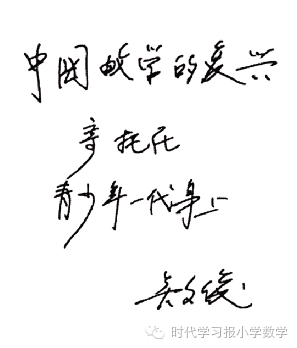 中国数学的复兴
寄托在
青少年一代身上
吴文俊
时代学习报小学数学